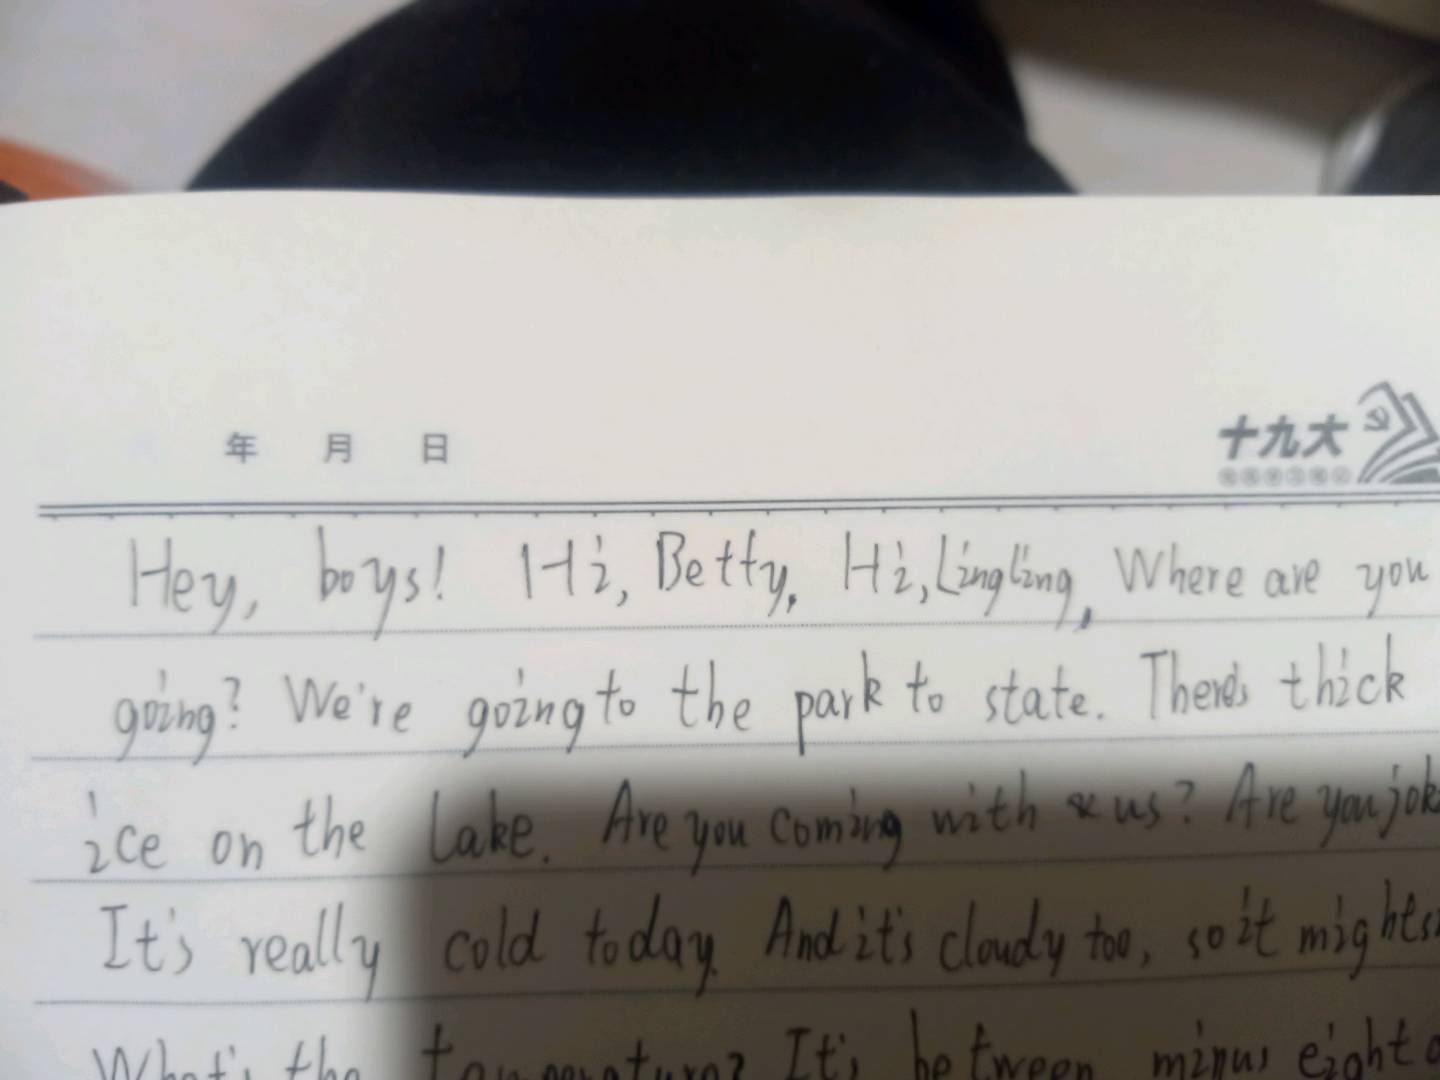 年 月 日
十九大
Hey, boys! Hi, Betty. Hi, Lingling, Where are you
going? We're going to the park to state. There's thick
ice on the lake. Are you coming with us? Are you jok
It's really cold today. And it's cloudy too, so it might
What's the temperature? It's between minus eight